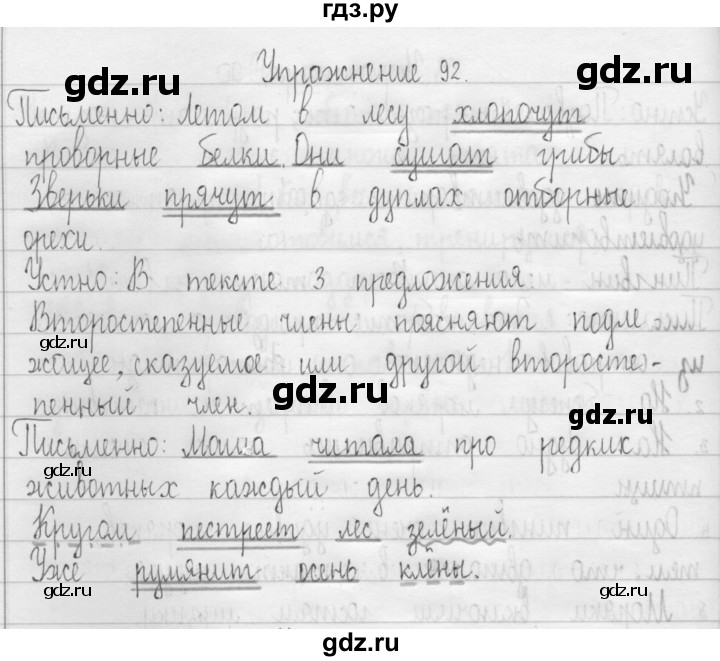 гдз.ру
Упражнение 92.
gdz.ru gdz.ru
Письменно: Летом в лесу хлопочут
проворные белки. Они сушат грибы.
Зверьки прячут в дуплах отборные
орехи.
Устно: В тексте 3 предложения.
Второстепенные члены поясняют подле-
жащее, сказуемое или другой второсте-
пенный член.
gdz.ru gdz.ru gdz.ru
Письменно: Маша читала про редких
животных каждый день.
gdz.ru gdz.ru
Кругом пестреет лес зелёный.
Уже румянит осень клёны.
gdz.ru gdz.ru
gdz.ru